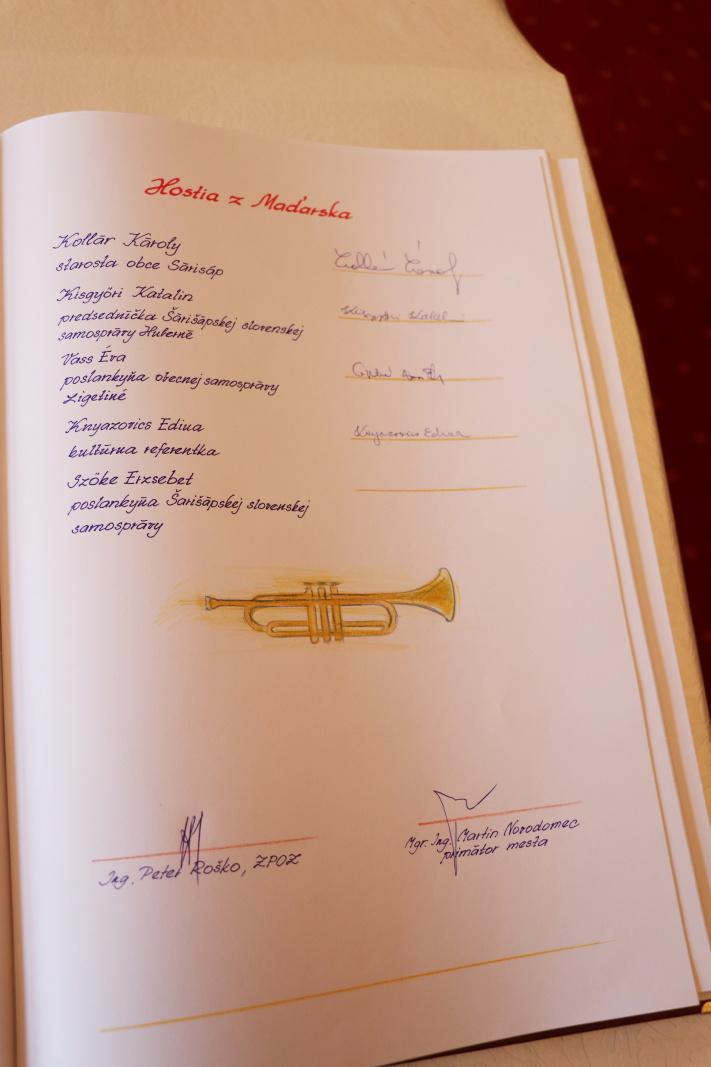 Hostia z Maďarska
Kollár Károly
starosta obce Sárisáp
Kisgyőri Katalin
predsedníčka Šárišápskej slovenskej
samosprávy Huberné
Vass Éva
poslankyňa obecnej samosprávy
Ligetiné
Knyazovics Edina
Knyazovics Edina
kultúrna referentka
Szőke Erzsebet
poslankyňa Šarišápskej slovenskej
samosprávy
Ing. Peter Roško, ZPOZ
Mgr. Ing. Martin Novodomec
primátor mesta